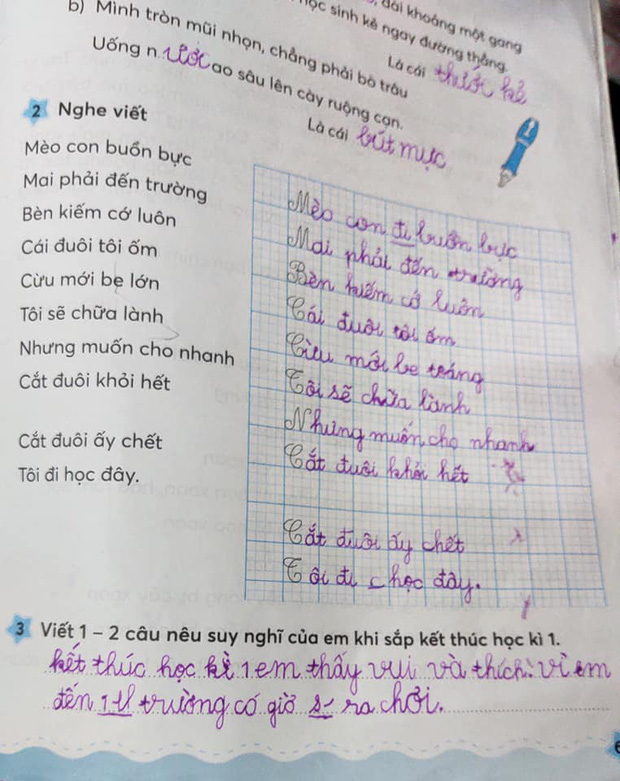 , dài khoảng một gang
học sinh kẻ ngay đường thẳng.
Là cái thước kẻ
b) Mình tròn mũi nhọn, chẳng phải bò trâu
Uống n ước ao sâu lên cày ruộng cạn.
Là cái bút mực
1
2 Nghe viết
Mèo con buồn bực
Mai phải đến trường
Bèn kiếm cớ luôn
Cái đuôi tôi ốm
Cừu mới be lớn
Tôi sẽ chữa lành
Nhưng muốn cho nhanh
Cắt đuôi khỏi hết
Cắt đuôi ấy chết
Tôi đi học đây.
Mèo con đi buồn bực
Mai phải đến trường
Bèn kiếm cớ luôn
Cái đuôi tôi ốm
Cừu mới be toáng
Tôi sẽ chữa lành
Nhưng muốn cho nhanh
Cắt đuôi khỏi hết
Cắt đuôi ấy chết
Tôi đi học đây.
3 Viết 1 – 2 câu nêu suy nghĩ của em khi sắp kết thúc học kì 1.
kết thúc học kì 1 em thấy vui và thích. vì em
đến trường có giờ ra chơi.